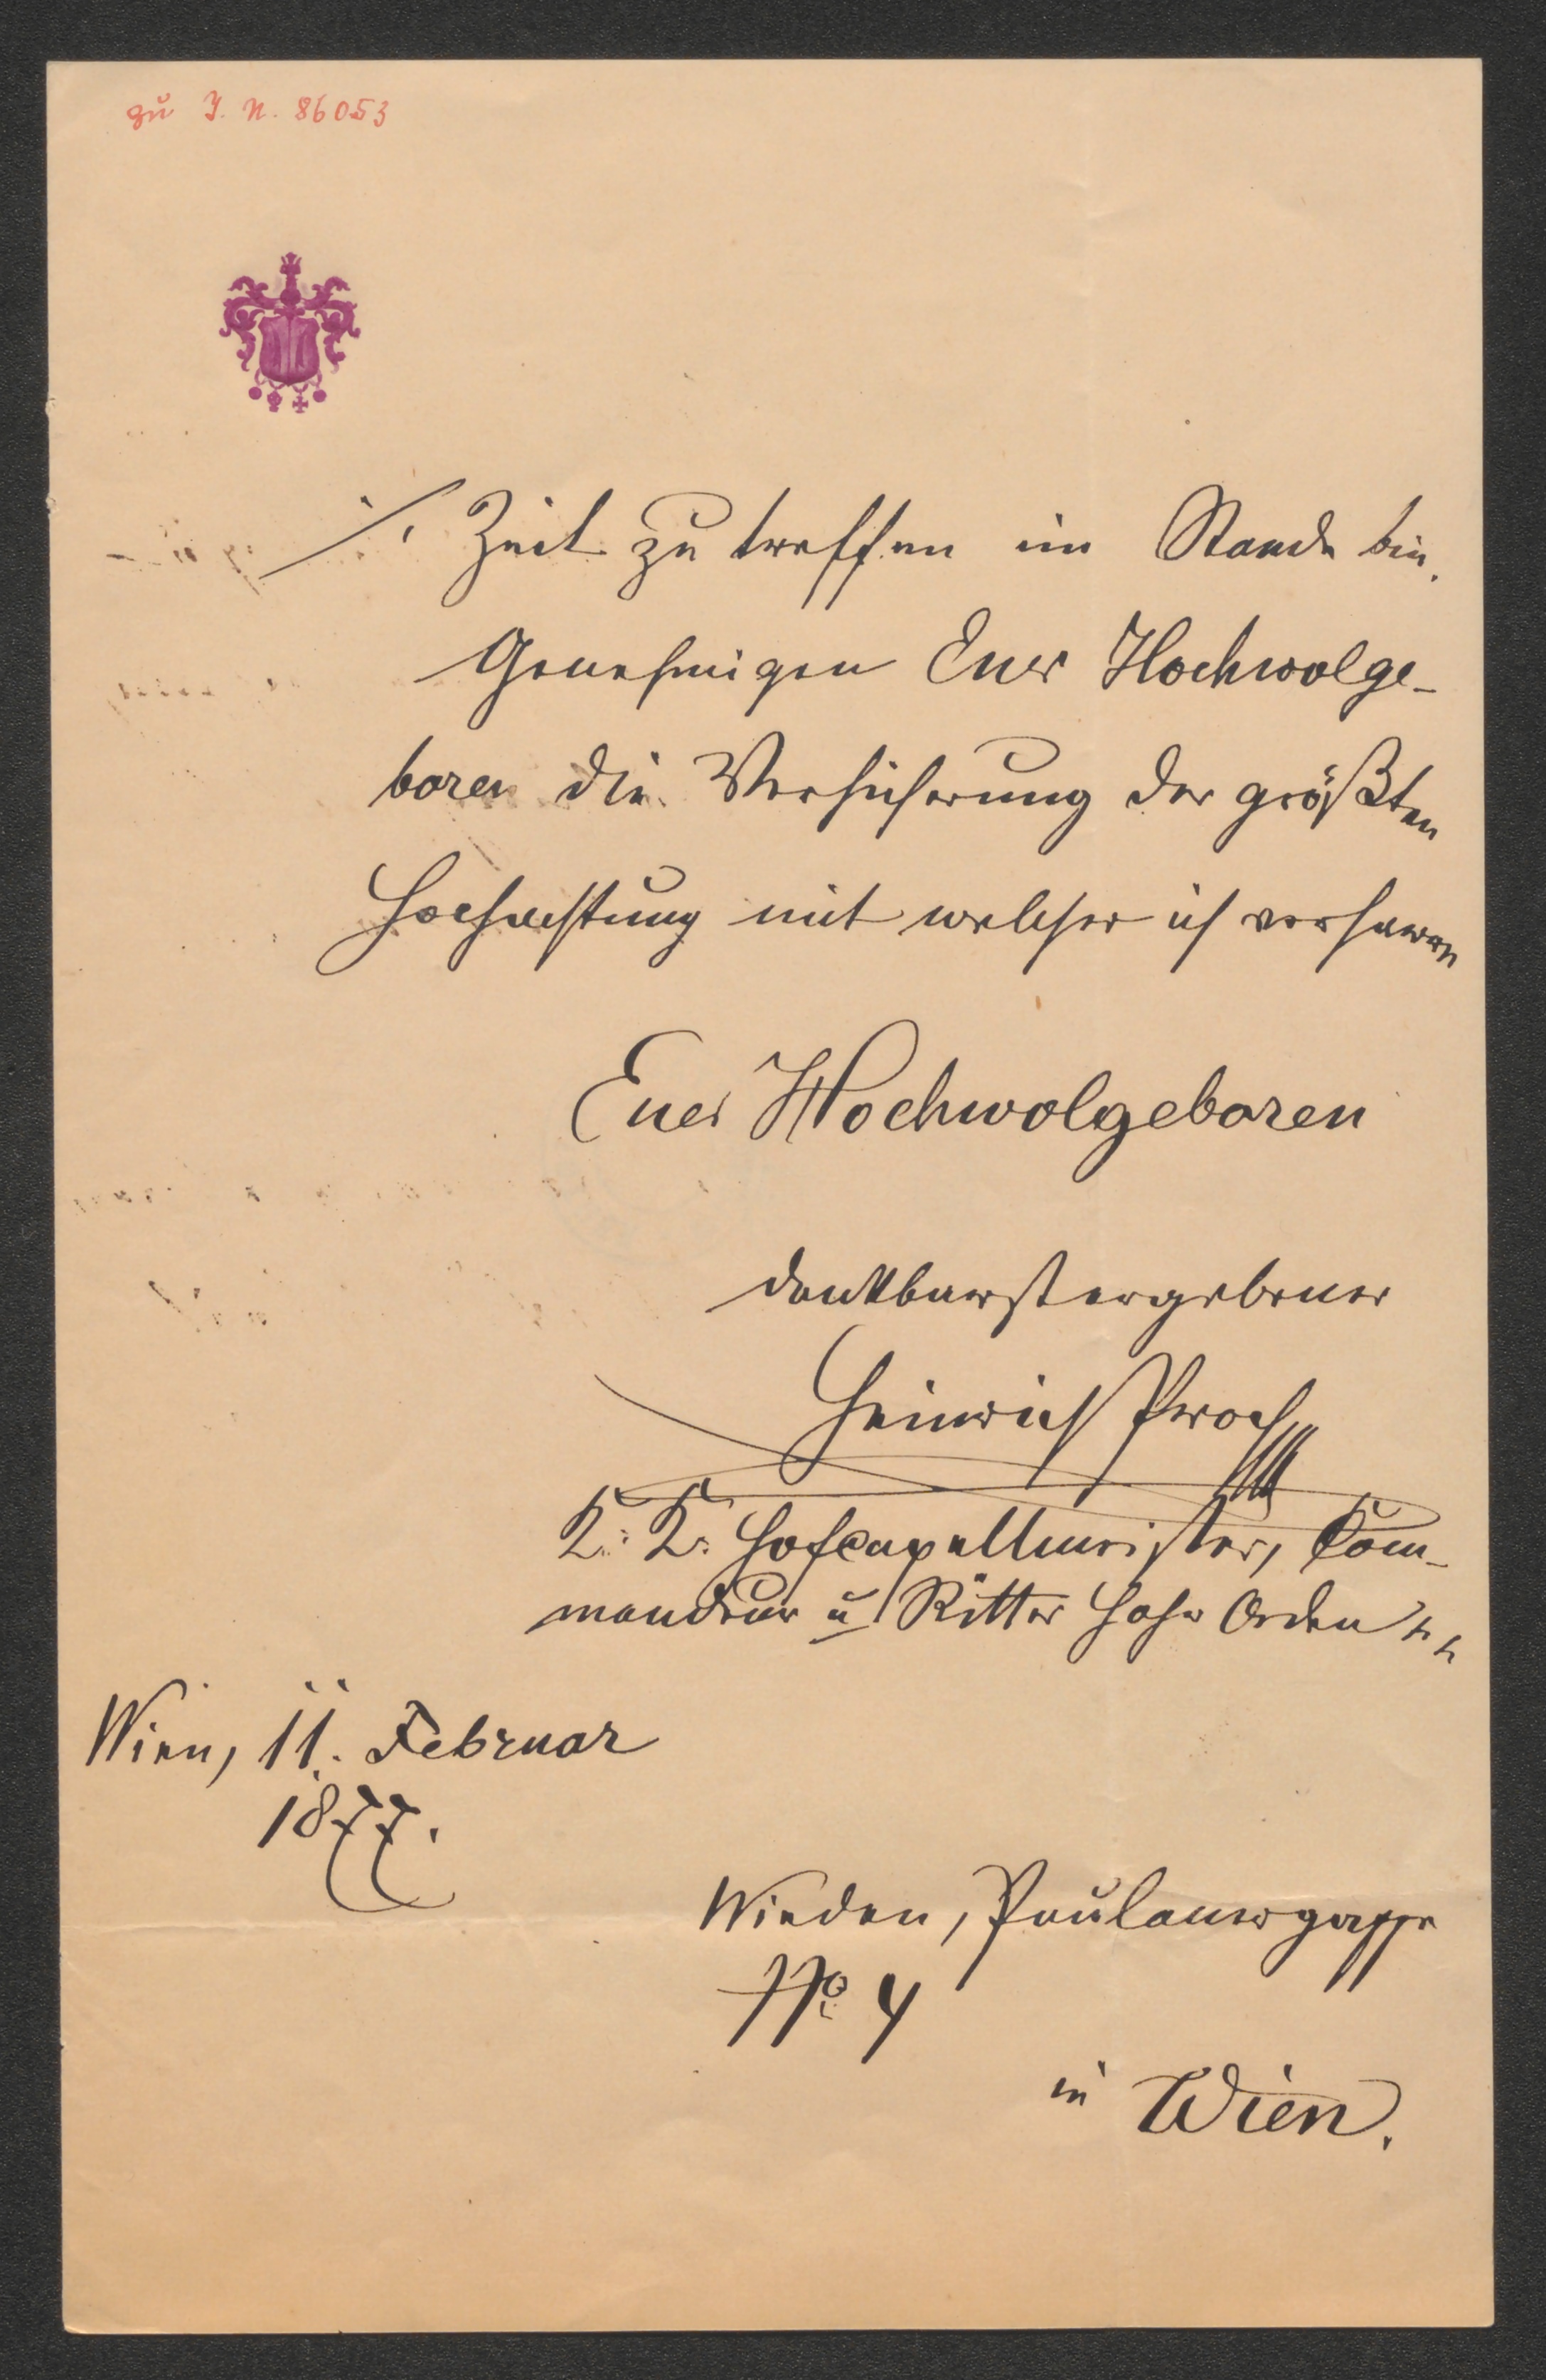 zu I. N. 86053
./. Zeit zu treffen im Stande bin.
Genehmigen Euer Hochwolge-
boren die Versicherung der größten
Hochachtung mit welcher ich verharre
Euer Hochwolgeboren
dankbarst ergebener
Heinrich Proch
K: K: Hofcapellmeister, Com-
mandeur u Ritter hoher Orden
Wien, 11. Februar
1877.
Wieden, Paulanergasse
No 4
in Wien.